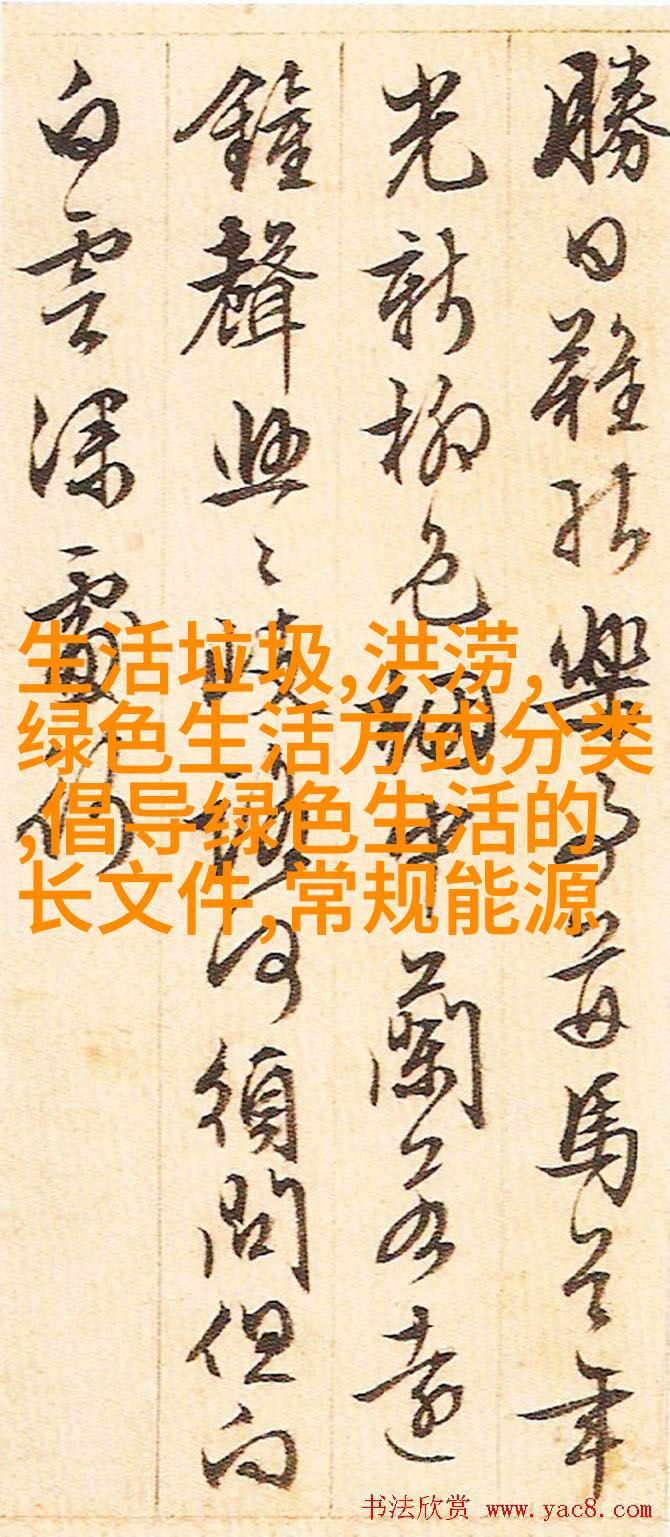 勝日難於樂事并馬年
光新柳色湖中蘭若遠
鐘聲何須問但向
白雲深處行
生活垃圾,洪涝,
绿色生活方式分类
,倡导绿色生活的
长文件,常规能源
书法欣赏 www.yac8.com